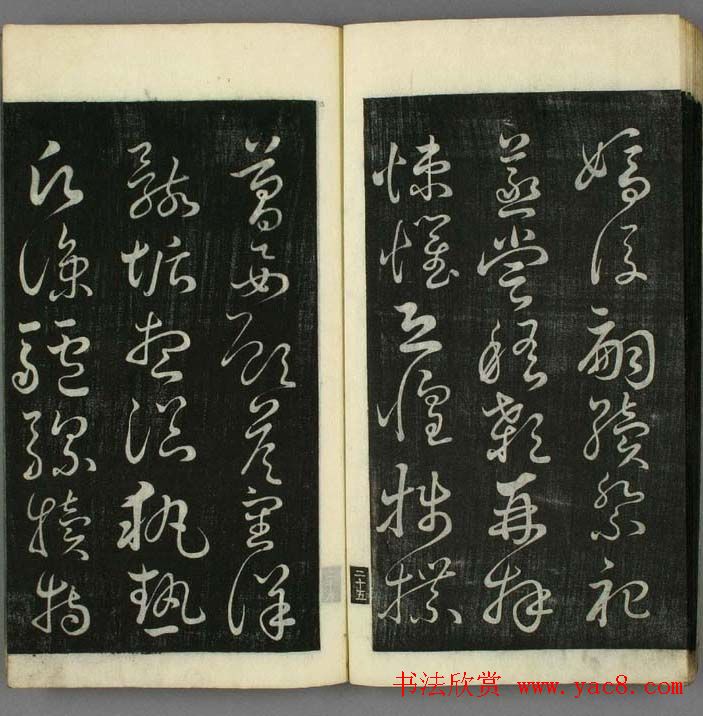 嫡後嗣續祭祀
蒸嘗稽顙再拜
悚懼恐惶牋牒
二十五
簡要顧答審詳
骸垢想浴執熱
願涼驢騾犢特
书法欣赏 www.yac8.com